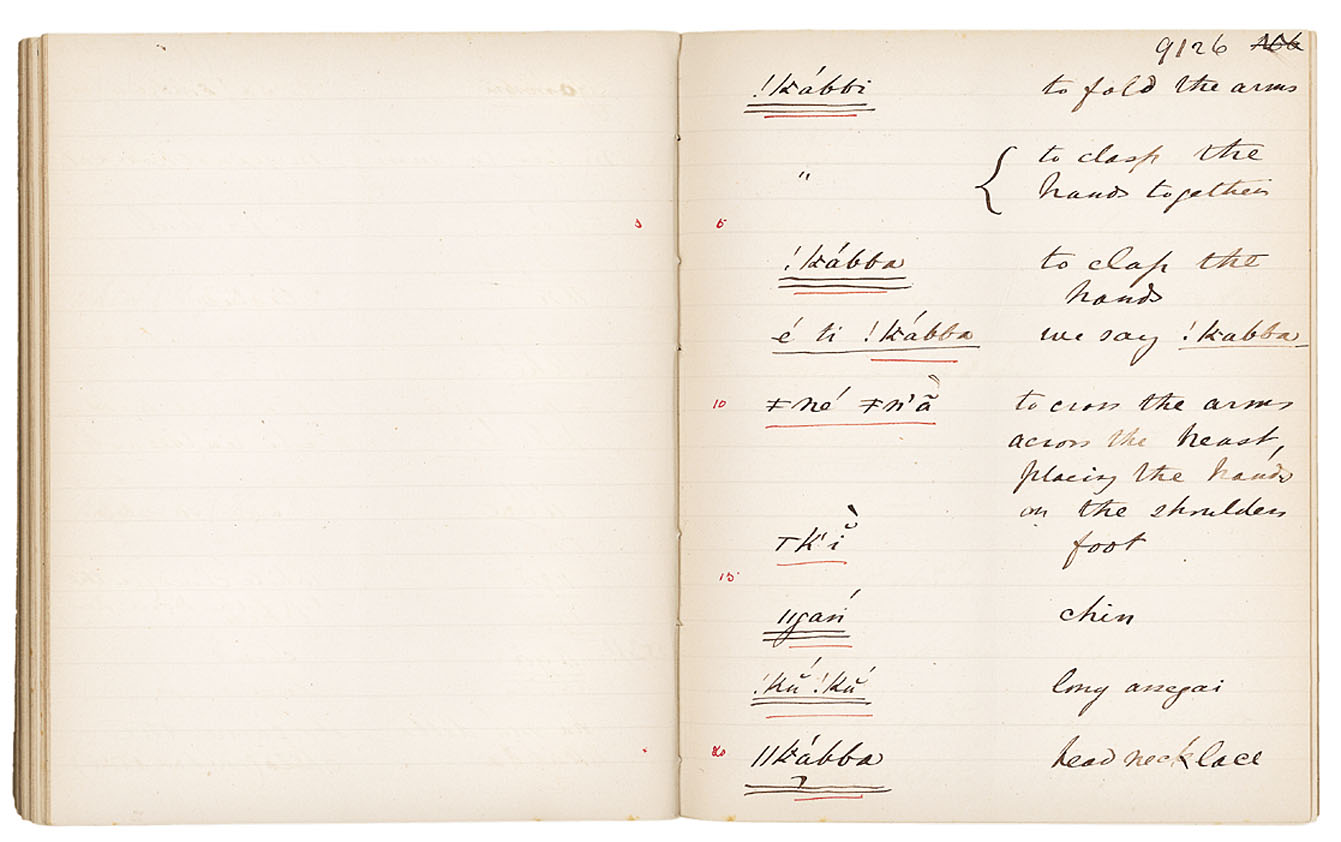 9126
!kábbi to fold the arms
" { to clasp the
hands together
5
!kábba to clap the
hands
é ti !kábba we say !kabba
10 ǂné ǂn'ã to cross the arms
across the breast,
placing the hands
on the shoulders
foot
15
ǁgań chin
!kŭ́ !kŭ́ long assegai
20 ǁkábba head necklace